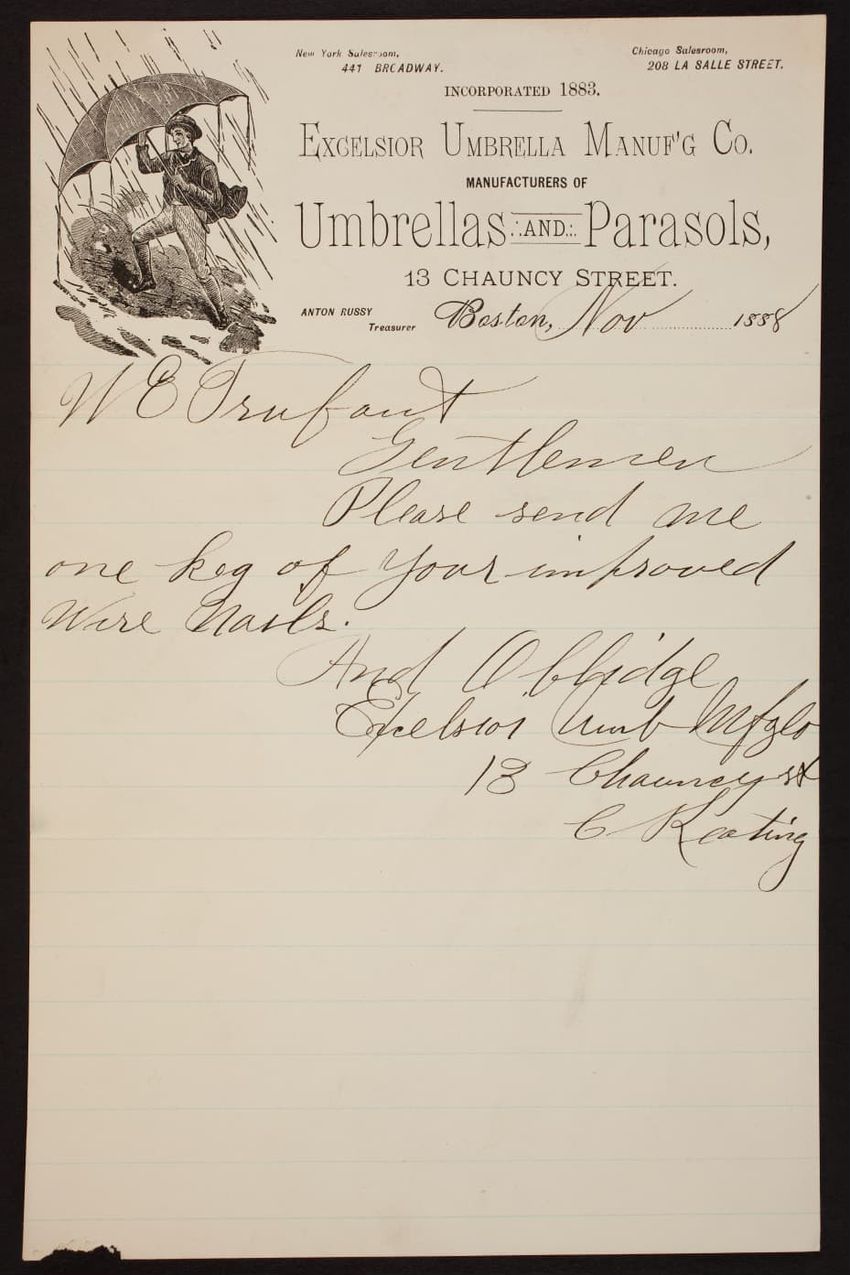 New York Salesroom,
441 BROADWAY.
Chicago Salesroom,
208 LA SALLE STREET.
INCORPORATED 1883.
EXCELSIOR UMBRELLA MANUF'G CO.
MANUFACTURERS OF
Umbrellas AND Parasols,
13 CHAUNCY STREET.
ANTON RUSSY
Treasurer
Boston, Nov 1888
W E Trufant
Gentlemen
Please send me
one keg of Your improved
Wire Nails.
And Obblidge
Excelsior Umb Mfg Co
13 Chauncy st
C Keating